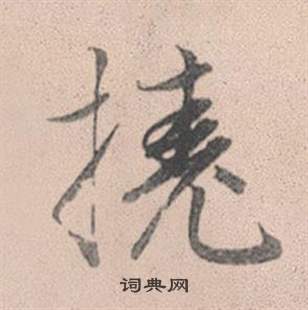 撓
词典网